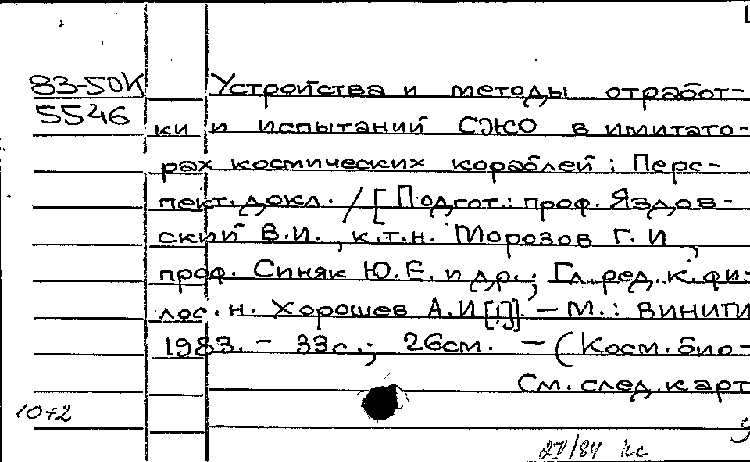 83-50К
5546
Устройства и методы отработ-
ки и испытаний СЖО в имитато-
рах космических кораблей : Перс-
пект. докл. / [Подгот.: проф. Яздов-
ский В.И., к.т.н. Морозов Г.И.,
проф. Синяк Ю.Е. и др.; Гл. ред. к. фи-
лос. н. Хорошев А.И.]. – М.: ВИНИТИ
1983. – 33с.; 26см. – (Косм. био-
См. след. карт
10+2
27/84 кс